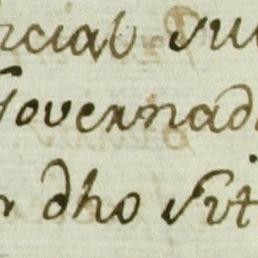 ncial su
Governad
r dho sit